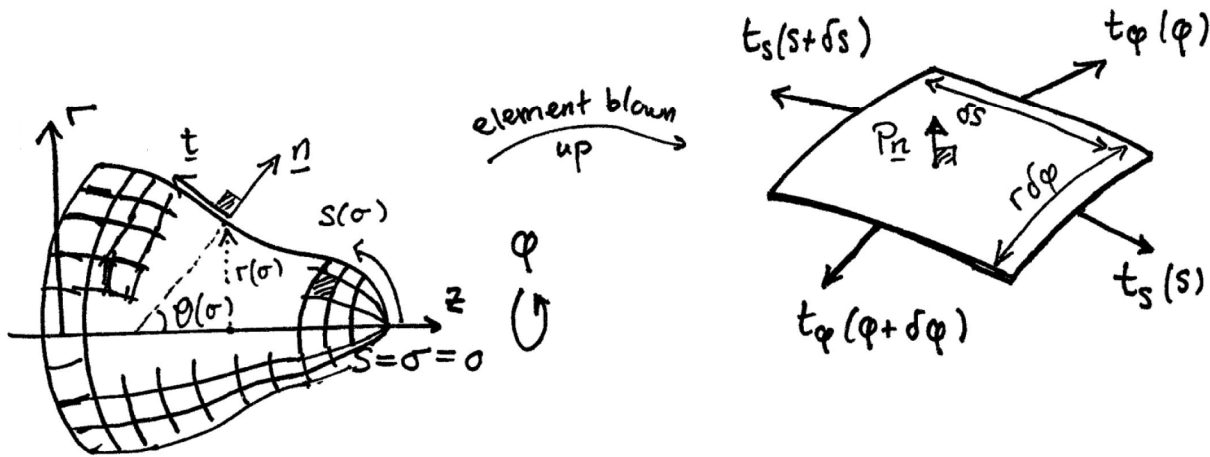 r
t
n
s(σ)
r(σ)
θ(σ)
z
S=σ=0
φ
element blown
up
t_s(s+δs)
t_φ(φ)
δs
Pn
rδφ
t_s(s)
t_φ(φ+δφ)